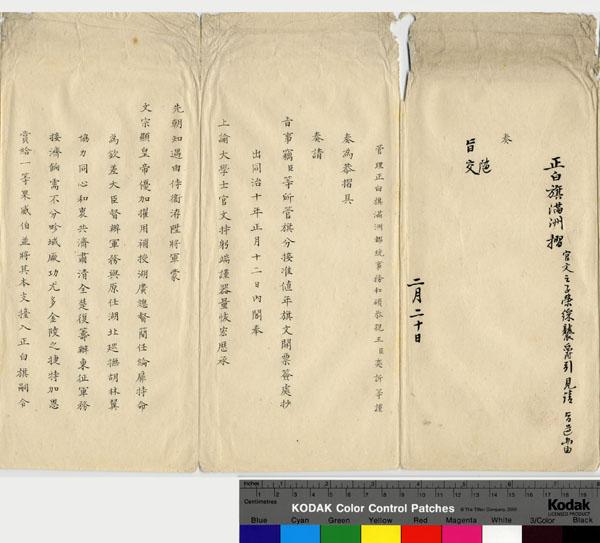 正白旗滿洲 摺 官文之子榮綵襲爵引見請
奏
旨
交
二月二十日
管理正白旗滿洲都統事務和碩恭親王臣奕訢等謹
奏為恭摺具
奏請
旨事竊臣等所管旗分接准値年旗文開票簽處抄
出同治十年正月十二日內閣奉
上諭大學士官文持躬端謹器量恢宏歷承
先朝知遇由侍衛洊陞將軍蒙
文宗顯皇帝優加擢用補授湖廣總督簡任綸扉特命
為欽差大臣督辦軍務與原任湖北巡撫胡林翼
協力同心和衷共濟肅清全楚復籌辦東征軍務
接濟餉需不分畛域厥功尤多金陵之捷特加恩
賞給一等果威伯並將其本支擡入正白旗嗣令
Inches 1 2 3 4 5 6 7 8
Centimetres 1 2 3 4 5 6 7 8 9 10 11 12 13 14 15 16 17 18 19
KODAK Color Control Patches © The Tiffen Company, 2000 Kodak
LICENSED PRODUCT
Blue Cyan Green Yellow Red Magenta White 3/Color Black